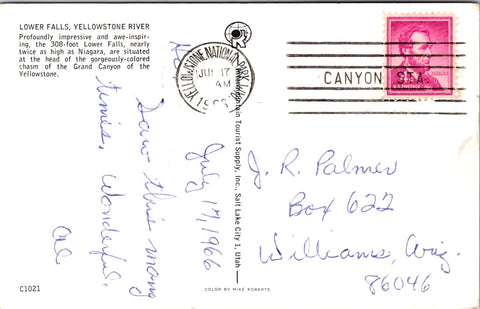 LOWER FALLS, YELLOWSTONE RIVER
Profoundly impressive and awe-inspir-
ing, the 308-foot Lower Falls, nearly
twice as high as Niagara, are situated
at the head of the gorgeously-colored
chasm of the Grand Canyon of the
Yellowstone.
Saw this many
times. Wonderful.
July 17, 1966
Tourist Supply, Inc., Salt Lake City 1, Utah
YELLOWSTONE NATIONAL PARK
JUL 17
AM
CANYON STA.
J. R. Palmer
Box 622
Williams, Ariz.
86046
C1021
COLOR BY MIKE ROBERTS